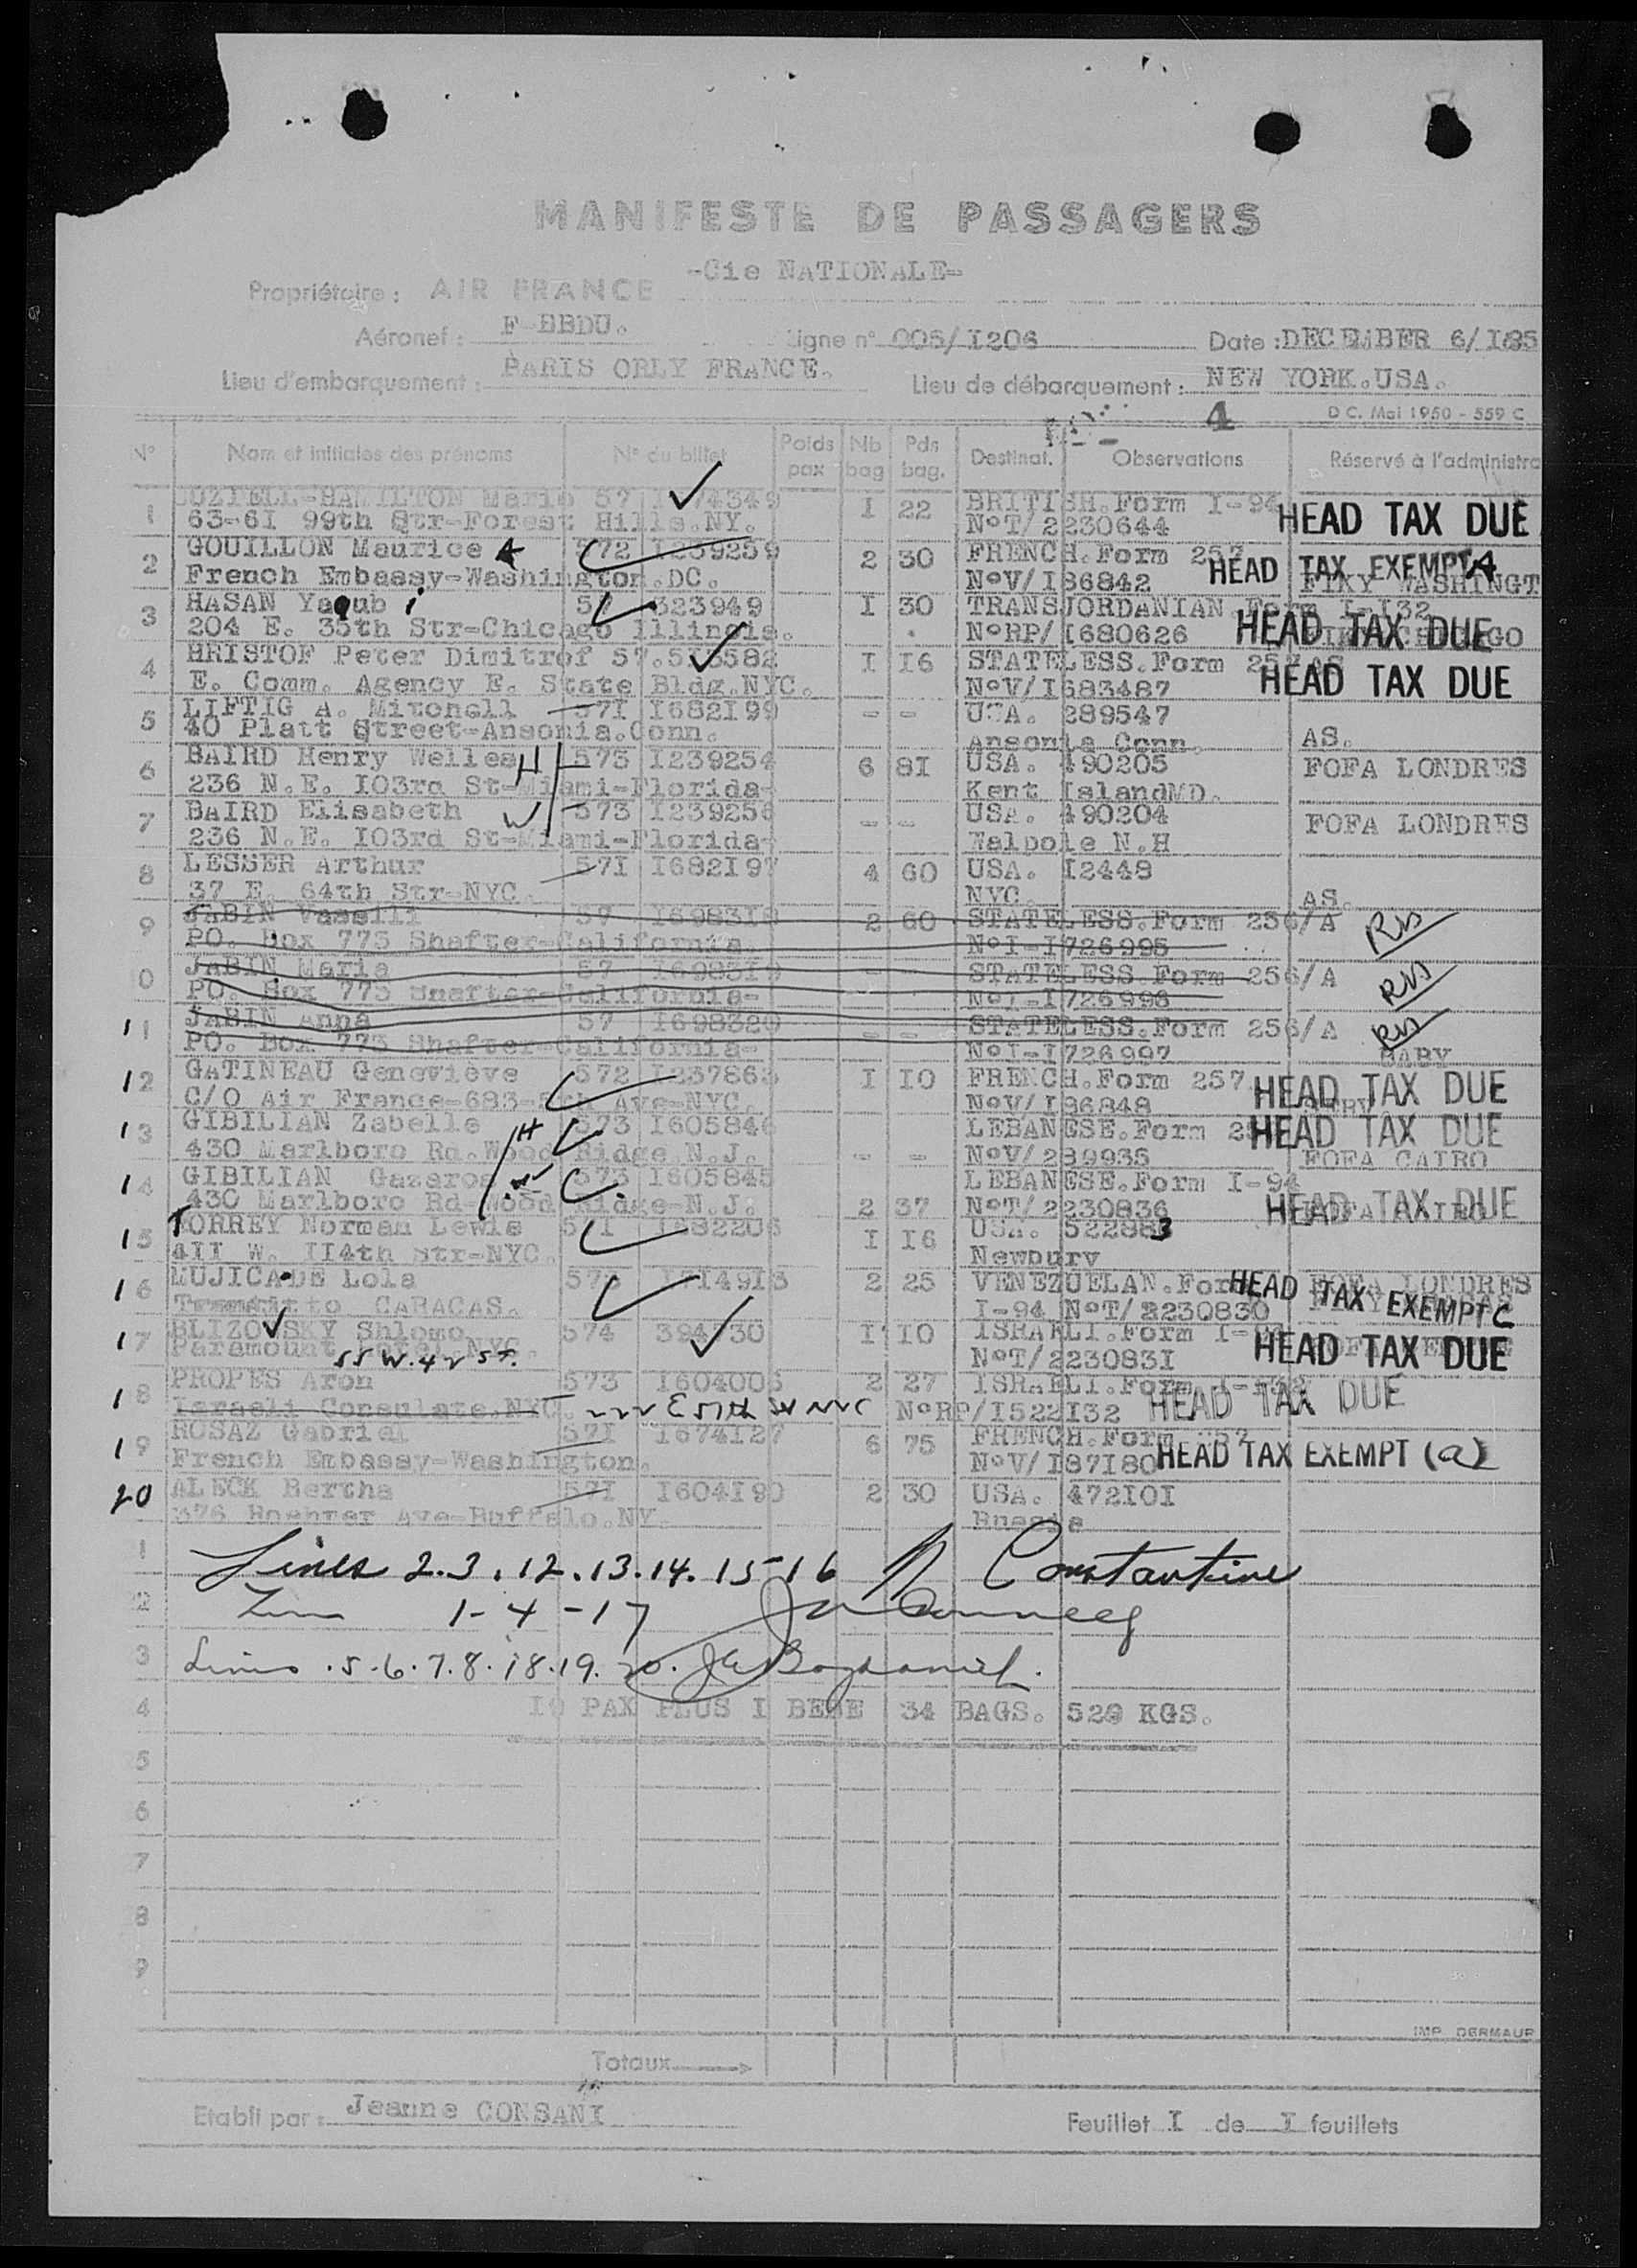 MANIFESTE DE PASSAGERS
-Cie NATIONALE-
Propriétaire : AIR FRANCE
Aéronef : F-BBDU. Ligne n° 005/I206 Date : DECEMBER 6/
Lieu d'embarquement : PARIS ORLY FRANCE. Lieu de débarquement : NEW YORK.USA.
4 D C. Mai 1950 - 559 C
N° Nom et initiales des prénoms N° du billet Poids pax Nb bag Pds bag. Destinat. Observations Réservé à l'administra
1 -HAMILTON Marie 57 4349 I 22 BRITISH.Form I-94 HEAD TAX DUE
63-6I 99th Str-Forest Hills.NY. N°T/2230644
2 GOUILLON Maurice 572 I239259 2 30 FRENCH.Form 257 HEAD TAX EXEMPT A
French Embassy-Washington.DC. N°V/I86842 FIKY WASHINGT
3 HASAN Yaqub i 57 323949 I 30 TRANSJORDANIAN.Form I-I32
204 E. 35th Str-Chicago Illinois. N°RP/I680626 HEAD TAX DUE
4 HRISTOF Peter Dimitrof 57.5I3582 I I6 STATELESS.Form 257 HEAD TAX DUE
E. Comm. Agency E. State Bldg.NYC. N°V/I683487
5 LIFTIG A. Mitchell 57I I682I99 - - USA. 289547
40 Platt Street-Ansonia.Conn. Ansonia Conn. AS.
6 BAIRD Henry Welles H 573 I239254 6 8I USA. 490205 FOFA LONDRES
236 N.E. I03rd St-Miami-Florida- Kent IslandMD.
7 BAIRD Elisabeth W 573 I239256 - - USA. 490204 FOFA LONDRES
236 N.E. I03rd St-Miami-Florida- Walpole N.H
8 LESSER Arthur 57I I682I97 4 60 USA. I2448
37 E. 64th Str-NYC. NYC. AS.
9 JABIN Vassili 57 I6983I8 2 60 STATELESS.Form 256/A
PO. Box 773 Shafter-California. N°I-I726995
0 JABIN Maria 57 I6983I9 - - STATELESS.Form 256/A
PO. Box 773 Shafter-California- N°I-I726996
11 JABIN Anna 57 I698320 - - STATELESS.Form 256/A
PO. Box 773 Shafter-California- N°I-I726997 BABY
12 GATINEAU Geneviève 572 I237863 I I0 FRENCH.Form 257 HEAD TAX DUE
C/O Air France-683-5th Ave-NYC. N°V/I86848
13 GIBILIAN Zabelle H 573 I605846 LEBANESE.Form HEAD TAX DUE
430 Marlboro Rd.Wood Ridge.N.J. - - N°V/289935 FOFA CAIRO
14 GIBILIAN Gazaros 573 I605845 LEBANESE.Form I-94
430 Marlboro Rd-Wood Ridge-N.J. 2 37 N°T/2230836 HEAD TAX DUE
15 TORREY Norman Lewis 57I I682206 I I6 USA. 522883
4II W. II4th Str-NYC. Newbury
16 MUJICA DE Lola 573 I7I49I3 2 25 VENEZUELAN.Form HEAD TAX EXEMPT C FOFA LONDRES
CARACAS. I-94 N°T/2230830
17 BLIZOVSKY Shlomo 574 394 30 I I0 ISRAELI.Form HEAD TAX DUE
Paramount Hotel.NYC. 55 W. 42 ST. N°T/223083I
18 PROPES Aron 573 I604006 2 27 ISRAELI.Form I-I32 HEAD TAX DUE
Israeli Consulate.NYC. N°RP/I522I32
19 ROSAZ Gabriel 57I I674I27 6 75 FRENCH.Form 257
French Embassy-Washington. N°V/I87I80 HEAD TAX EXEMPT (a)
20 ALECK Bertha 57I I604I90 2 30 USA. 472I0I
376 Ave-Buffalo.NY. Russia
1 Lines 2.3.12.13.14.15-16 Constantine
2 1-4-17
3 Lines .5.6.7.8.18.19.20.
4 PAX PLUS I BEBE 34 BAGS. 529 KGS.
5
6
7
8
9
IMP. DERMAUP
Totaux
Etabli par : Jeanne CONSANI Feuillet I de I feuillets